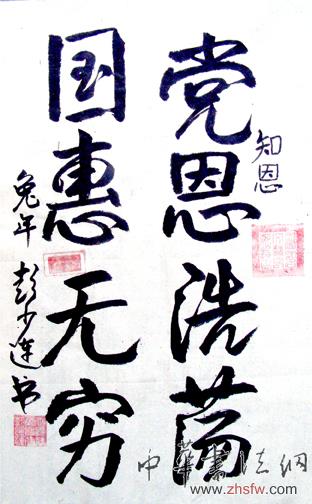 知恩
党恩浩荡
国惠无穷
兔年 彭少连书
中華書法网
www.zhsfw.com